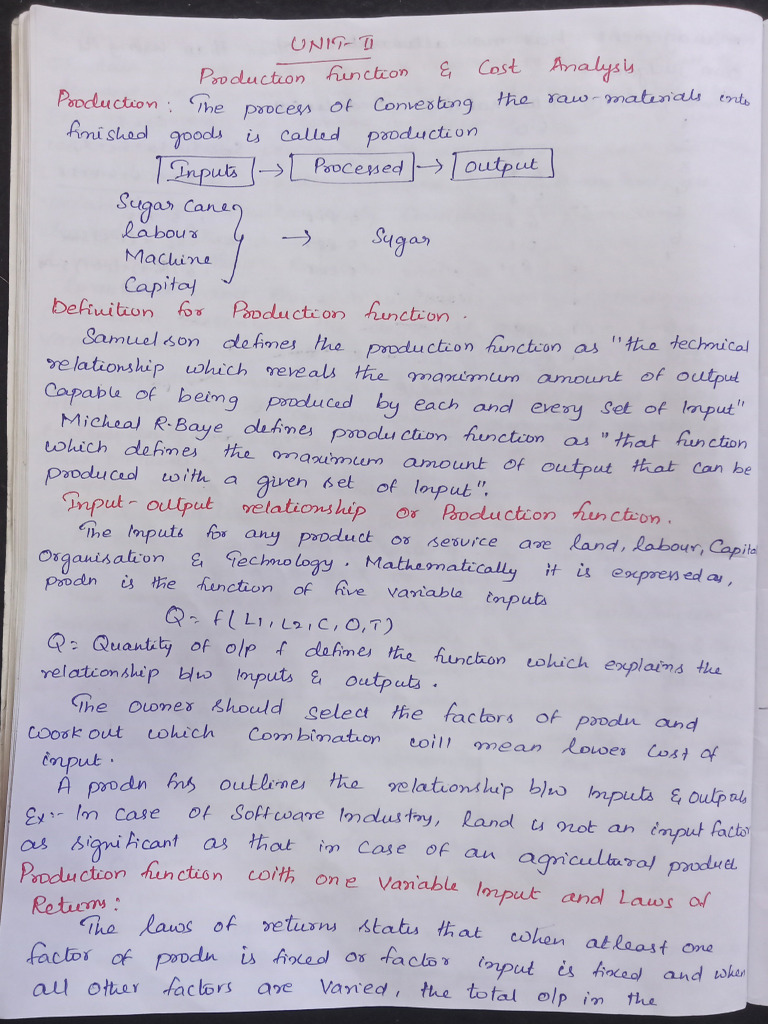 UNIT-II
Production function & Cost Analysis
Production: The process of Converting the raw-materials into
finished goods is called production
Inputs → Processed → output
Sugar Cane
labour
Machine
Capital
→ Sugar
Definition for Production function.
Samuelson defines the production function as "the technical
relationship which reveals the maximum amount of output
Capable of being produced by each and every set of Input"
Micheal R. Baye defines production function as "that function
which defines the maximum amount of output that can be
produced with a given set of Input".
Input-output relationship or Production function.
The Inputs for any product or service are land, labour, Capital
Organisation & Technology. Mathematically it is expressed as,
prodn is the function of five variable inputs
Q = f(L1, L2, C, O, T)
Q = Quantity of o/p f defines the function which explains the
relationship b/w Inputs & outputs.
The owner should select the factors of prodn and
work out which Combination will mean lower cost of
input.
A prodn fns outlines the relationship b/w Inputs & outputs
Ex:- In case of Software Industry, land is not an input factor
as significant as that in case of an agricultural product
Production function with one Variable Input and Laws of
Returns:
The laws of returns states that when atleast one
factor of prodn is fixed or factor input is fixed and when
all other factors are varied, the total o/p in the